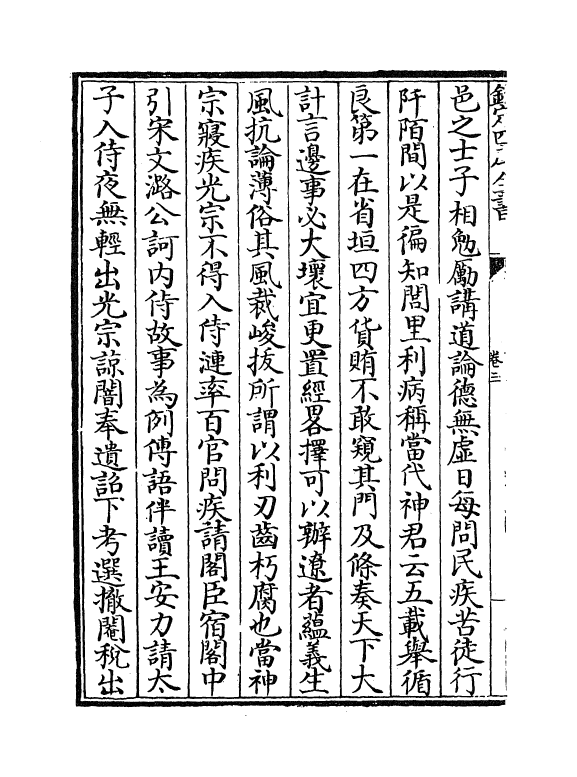 欽定四庫全書
卷三
邑之士子相勉勵講道論德無虛日每問民疾苦徒行
阡陌間以是徧知閭里利病稱當代神君云五載舉循
良第一在省垣四方貨賄不敢窺其門及條奏天下大
計言邊事必大壞宜更置經畧擇可以辦遼者蘊義生
風抗論薄俗其風裁峻拔所謂以利刃齒朽腐也當神
宗寢疾光宗不得入侍漣率百官問疾請閣臣宿閣中
引宋文潞公訶內侍故事為例傳語伴讀王安力請太
子入侍夜無輕出光宗諒闇奉遺詔下考選撤閹稅出